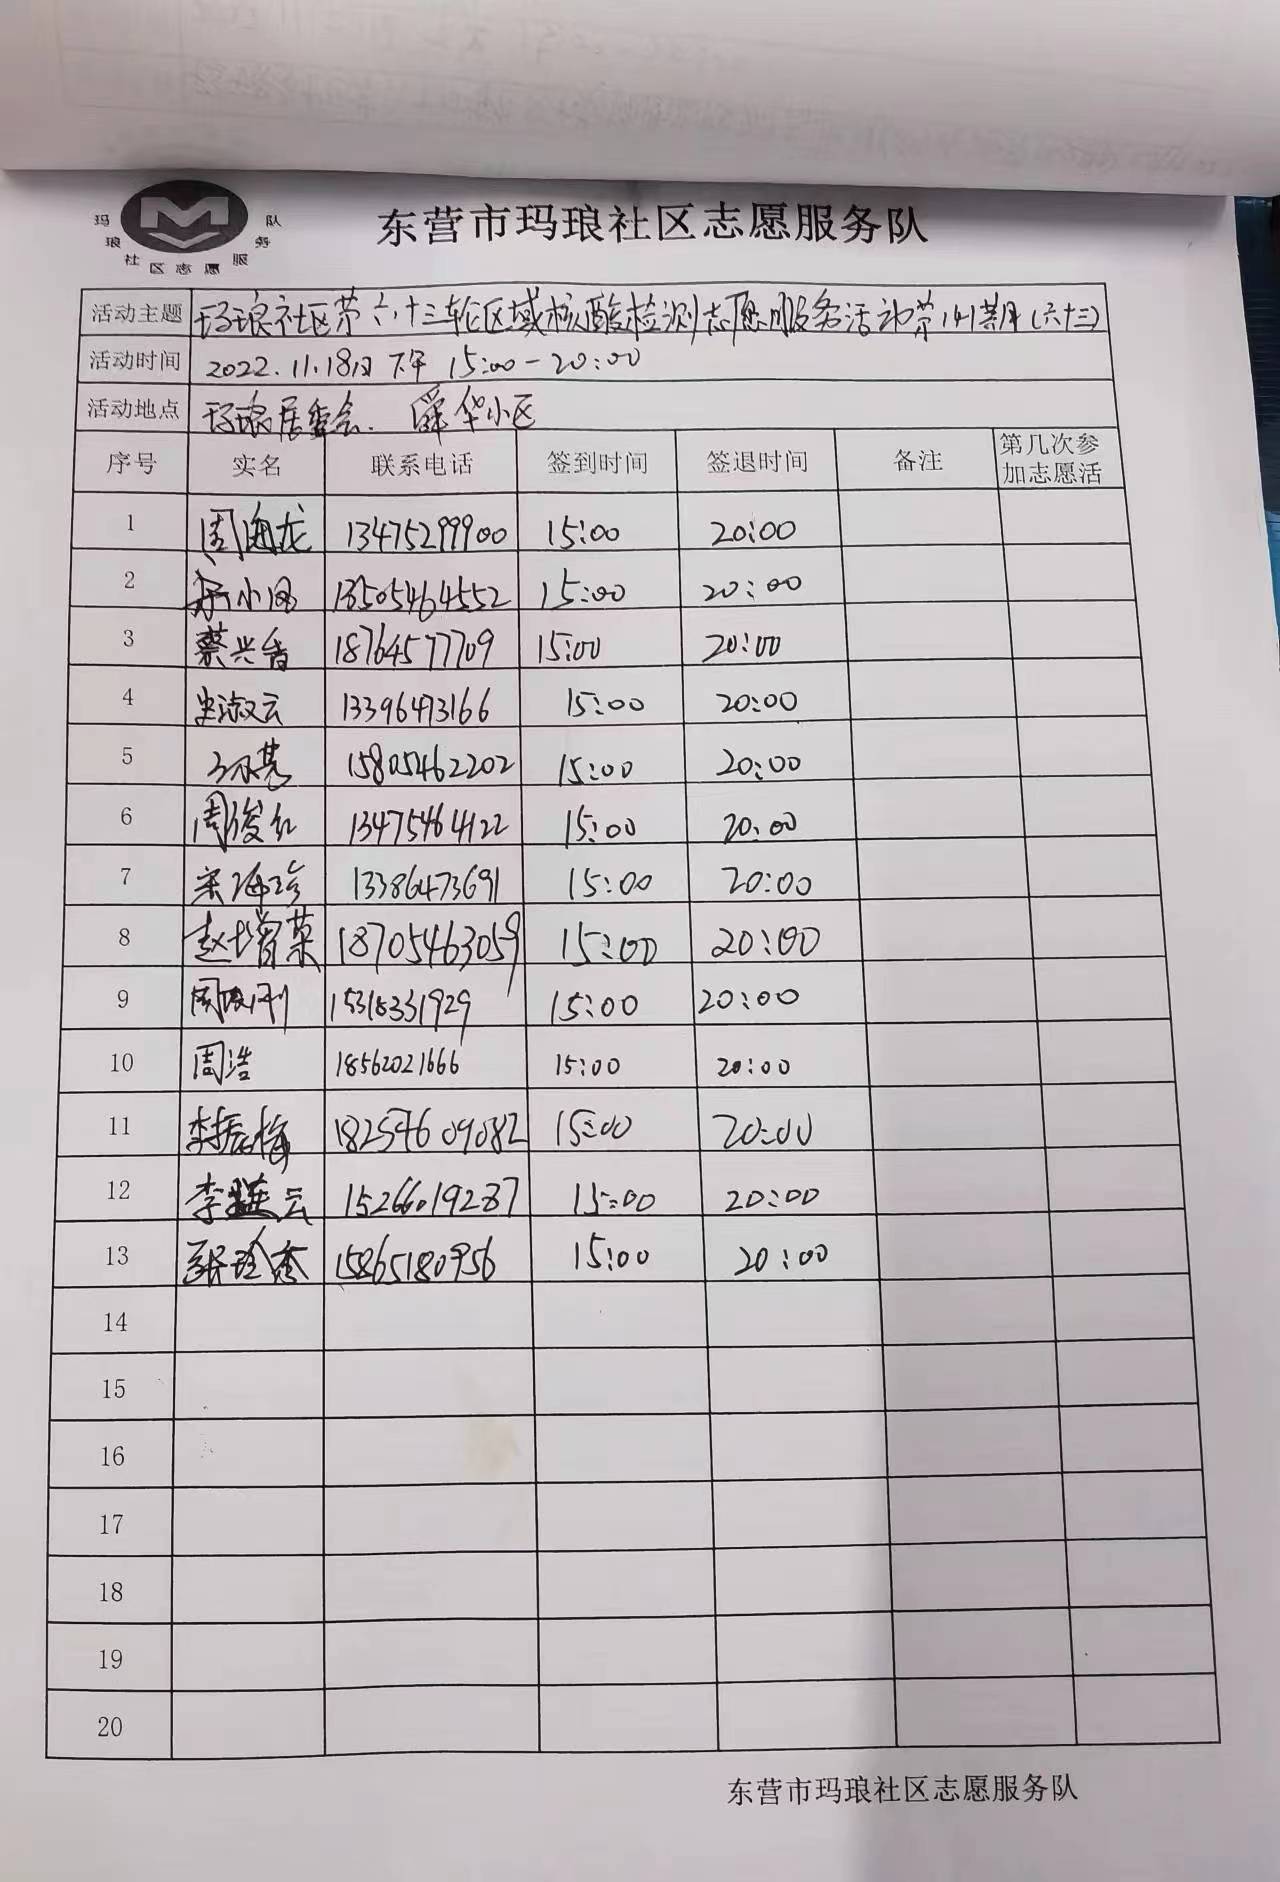 玛琅社区志愿服务队
东营市玛琅社区志愿服务队
活动主题 玛琅社区第六十三轮区域核酸检测志愿服务活动第 期(六十三)
活动时间 2022.11.18日下午 15:00-20:00
活动地点 玛琅居委会. 舜华小区
序号 实名 联系电话 签到时间 签退时间 备注 第几次参加志愿活
1 周海龙 13475299900 15:00 20:00
2 小凤 13505464552 15:00 20:00
3 蔡兴香 18764577709 15:00 20:00
4 史淑云 13396473166 15:00 20:00
5 15805462202 15:00 20:00
6 周俊红 13475464122 15:00 20:00
7 宋海珍 13386473691 15:00 20:00
8 赵增菜 18705463059 15:00 20:00
9 周 刚 15318331929 15:00 20:00
10 周浩 18562021666 15:00 20:00
11 李振梅 18254609082 15:00 20:00
12 李 云 15266019287 15:00 20:00
13 张玲秀 15865180956 15:00 20:00
14
15
16
17
18
19
20
东营市玛琅社区志愿服务队